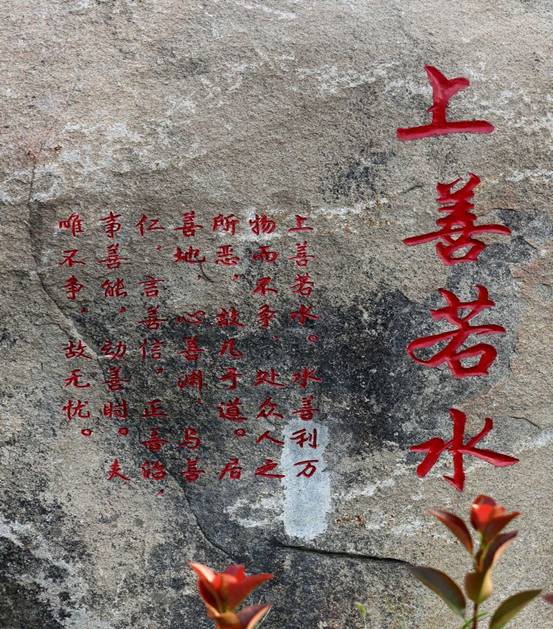 上善若水
上善若水。水善利万
物而不争，处众人之
所恶，故几于道。居
善地，心善渊，与善
仁，言善信，正善治，
事善能，动善时。夫
唯不争，故无忧。